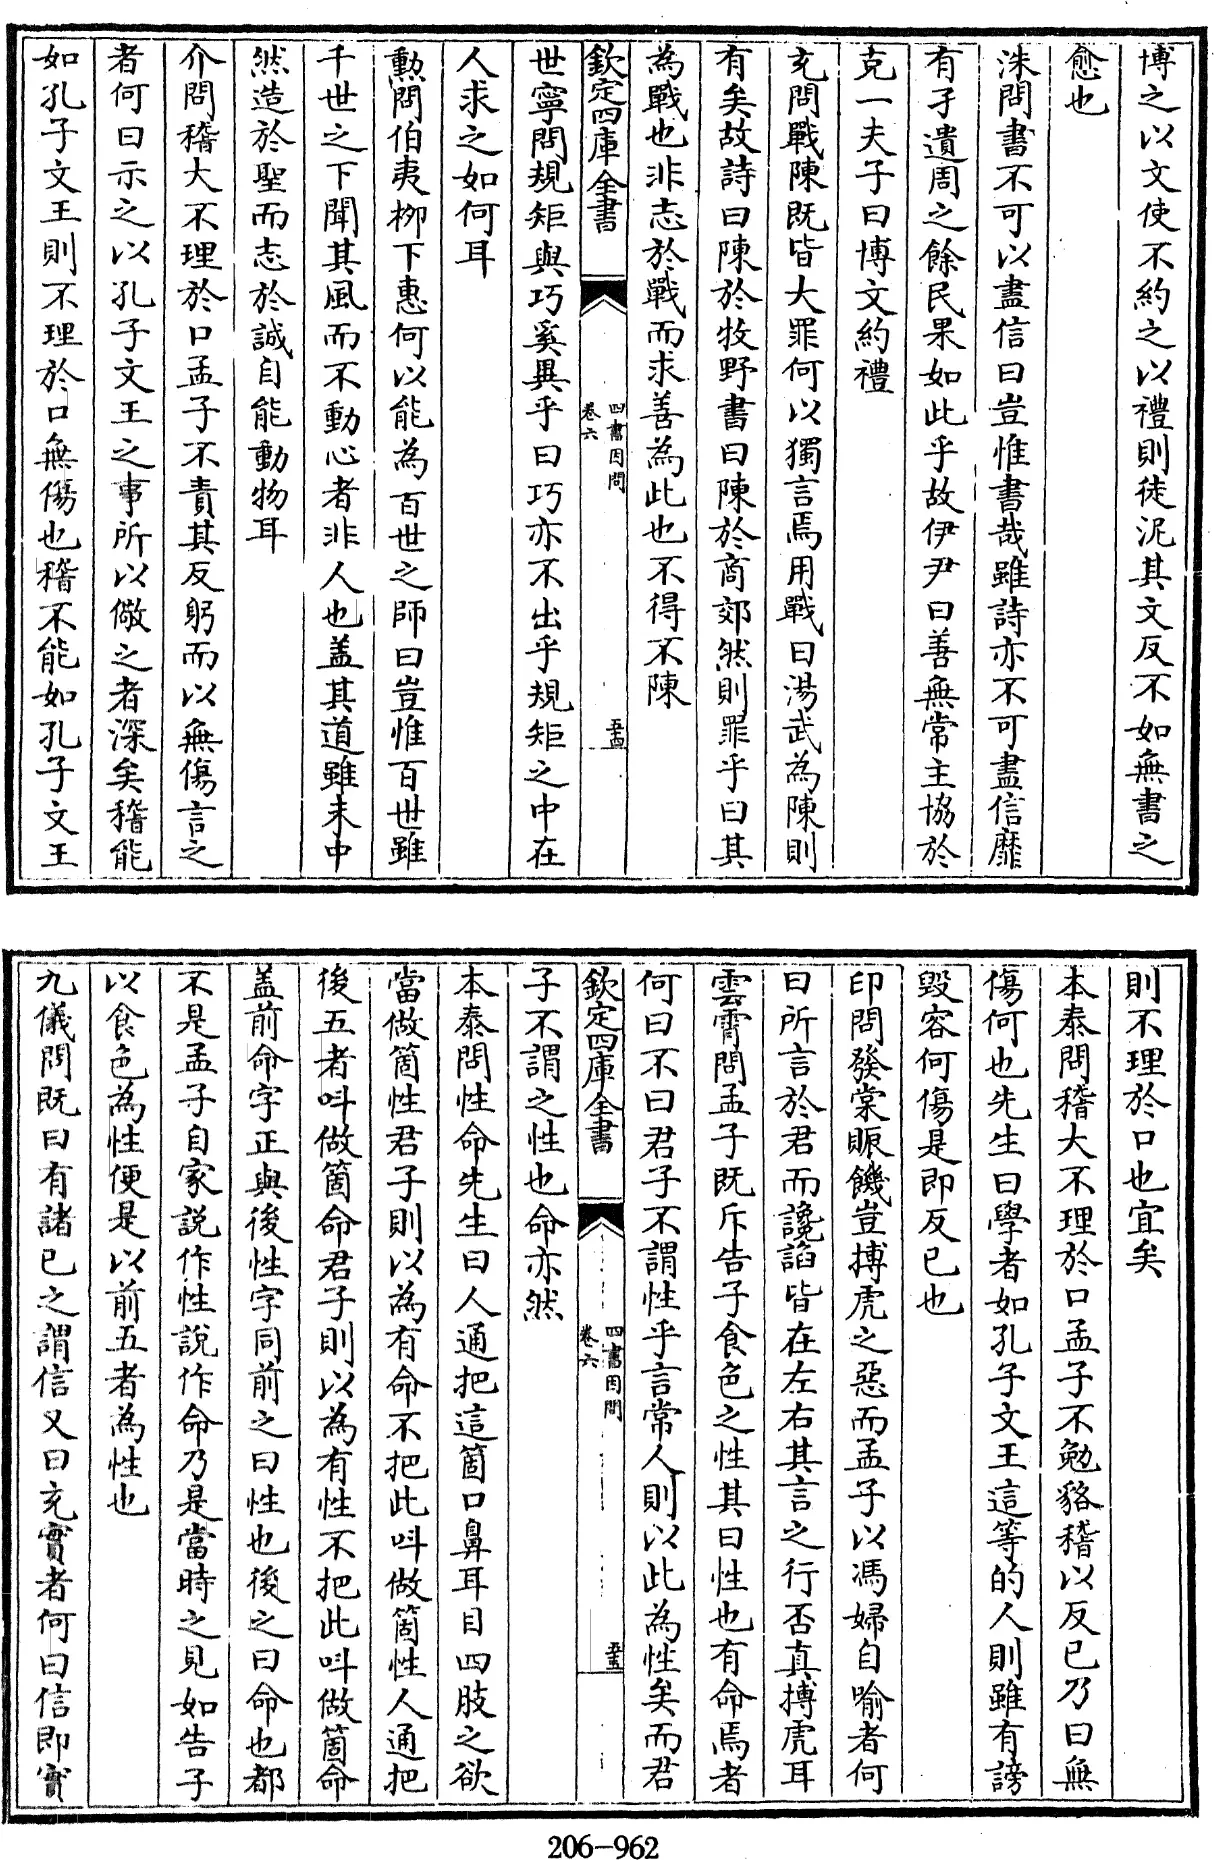 博之以文使不約之以禮則徒泥其文反不如無書之
愈也
洙問書不可以盡信曰豈惟書哉雖詩亦不可盡信靡
有孑遺周之餘民果如此乎故伊尹曰善無常主協於
克一夫子曰博文約禮
充問戰陳既皆大罪何以獨言焉用戰曰湯武為陳則
有矣故詩曰陳於牧野書曰陳於商郊然則罪乎曰其
為戰也非志於戰而求善為此也不得不陳
欽定四庫全書
四書因問
卷六
五十四
世寧問規矩與巧奚異乎曰巧亦不出乎規矩之中在
人求之如何耳
勲問伯夷柳下惠何以能為百世之師曰豈惟百世雖
千世之下聞其風而不動心者非人也蓋其道雖未中
然造於聖而志於誠自能動物耳
介問稽大不理於口孟子不責其反躬而以無傷言之
者何曰示之以孔子文王之事所以儆之者深矣稽能
如孔子文王則不理於口無傷也稽不能如孔子文王
則不理於口也宜矣
本泰問稽大不理於口孟子不勉貉稽以反已乃曰無
傷何也先生曰學者如孔子文王這等的人則雖有謗
毀容何傷是即反已也
印問發棠賑饑豈搏虎之惡而孟子以馮婦自喻者何
曰所言於君而讒謟皆在左右其言之行否真搏虎耳
雲霄問孟子既斥告子食色之性其曰性也有命焉者
何曰不曰君子不謂性乎言常人則以此為性矣而君
欽定四庫全書
四書因問
卷六
五十五
子不謂之性也命亦然
本泰問性命先生曰人通把這箇口鼻耳目四肢之欲
當做箇性君子則以為有命不把此呌做箇性人通把
後五者呌做箇命君子則以為有性不把此呌做箇命
蓋前命字正與後性字同前之曰性也後之曰命也都
不是孟子自家説作性説作命乃是當時之見如告子
以食色為性便是以前五者為性也
九儀問既曰有諸已之謂信又曰充實者何曰信即實
206-962